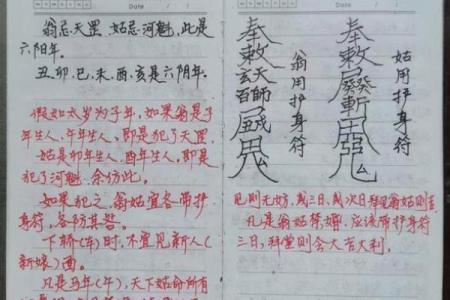 Date
翁忌天罡，姑忌河魁，此是
六阳年。
丑、卯、巳、未、酉、亥是六阴年。
假如太岁为子年，如果翁是子
年生人，午年生人，即是犯了天罡，
姑是卯年生人，酉年生人，即是
犯了河魁，余仿此。
如果犯之，翁姑宜各带护
身符，各防其咎。
下轿(车)时，不宜见新人(
新娘)面。
凡是马年(午)，天下姑命所有
Date
奉敕
玄天
百師
翁用护身符
奉敕
姑用护身符
见则无妨，或三日，或次日拜见翁姑则吉
凡是翁姑禁婚，应该带护身符
三日，拜堂则会大吉大利。